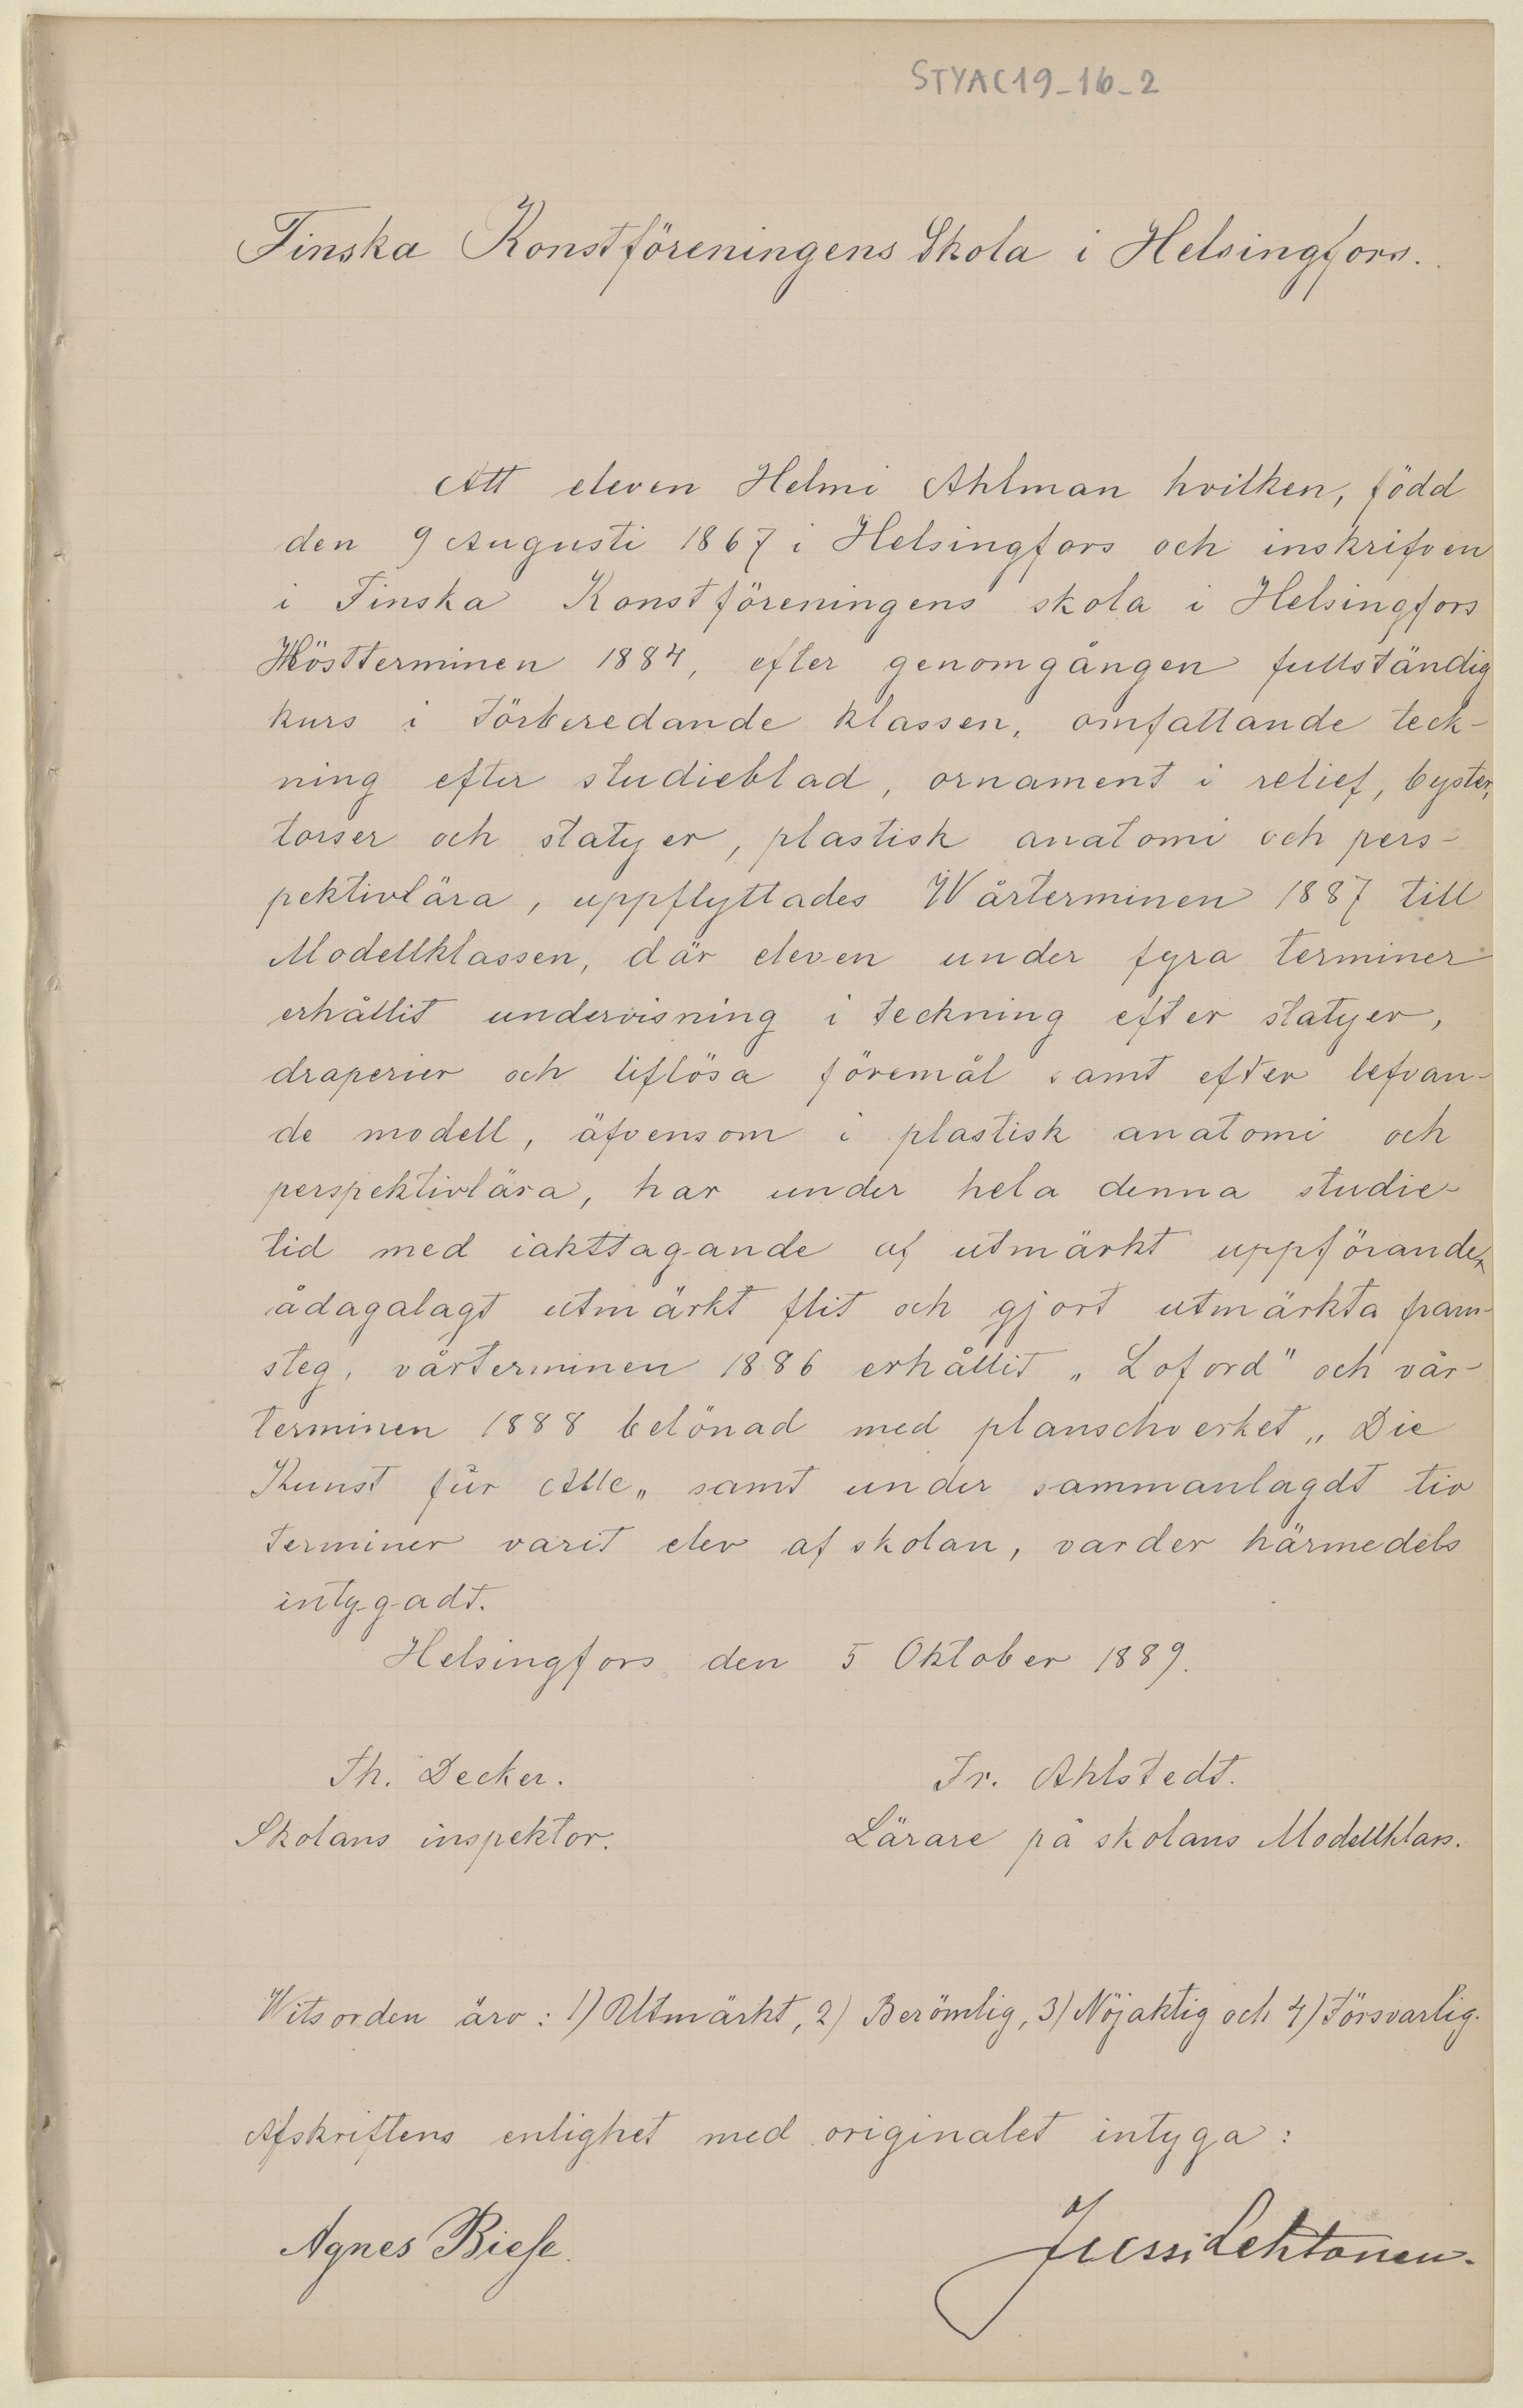 STYAC19_16_2
Finska Konstföreningens Skola i Helsingfors.
Att eleven Helmi Ahlman hvilken, född
den 9 Augusti 1867 i Helsingfors och inskrifven
i Finska Konstföreningens skola i Helsingfors
Höstterminen 1884, efter genomgången fullständig
kurs i Förberedande klassen, omfattande teck-
ning efter studieblad, ornament i relief, byster,
torser och statyer, plastisk anatomi och pers-
pektivlära, uppflyttades Wårterminen 1887 till
Modellklassen, där eleven under fyra terminer
erhållit undervisning i teckning efter statyer,
draperier och liflösa föremål samt efter lefvan-
de modell, äfvensom i plastisk anatomi och
perspektivlära, har under hela denna studie-
tid med iakttagande af utmärkt uppförande,
ådagalagt utmärkt flit och gjort utmärkta fram-
steg, vårterminen 1886 erhållit „Loford" och vår-
terminen 1888 belönad med planschverket „Die
Kunst für Alle„ samt under sammanlagdt tio
terminer varit elev af skolan, varder härmedels
intygadt.
Helsingfors den 5 Oktober 1889.
Th. Decker. Fr. Ahlstedt.
Skolans inspektor. Lärare på skolans Modellklass.
Witsorden äro: 1) Utmärkt, 2) Berömlig, 3) Nöjaktig och 4) Försvarlig.
Afskriftens enlighet med originalet intyga:
Agnes Biese. Jussi Lehtonen.